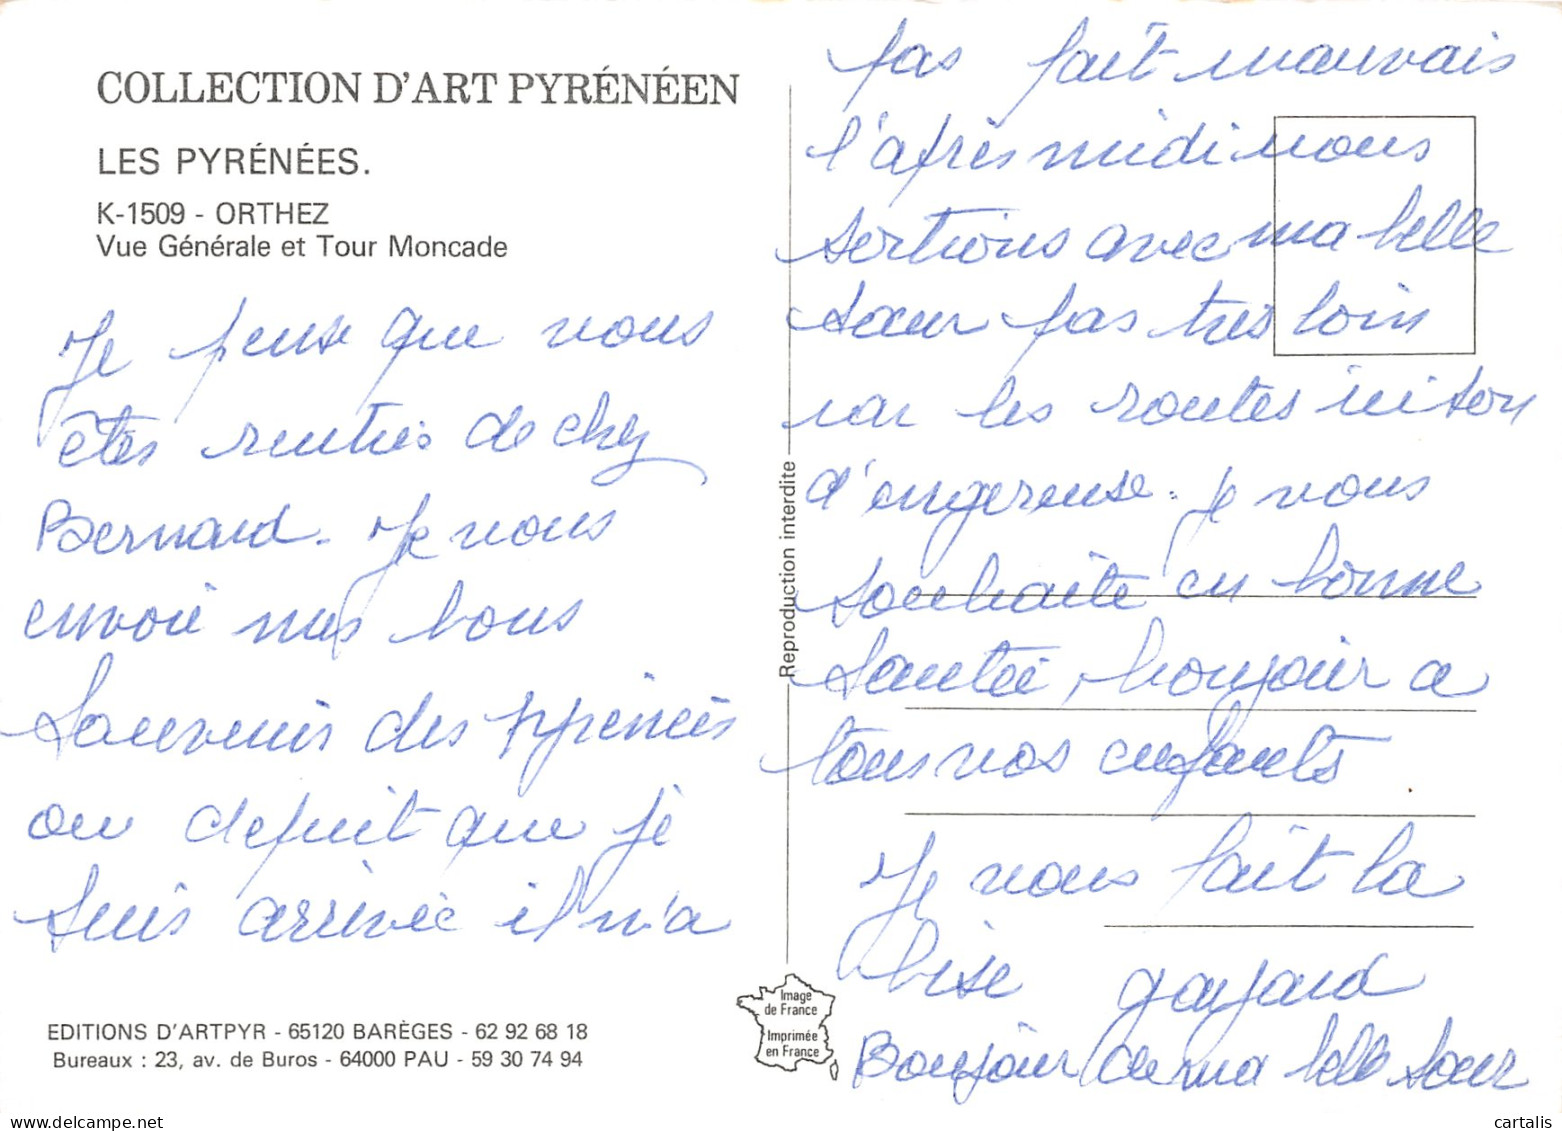 COLLECTION D'ART PYRÉNÉEN
LES PYRÉNÉES.
K-1509 - ORTHEZ
Vue Générale et Tour Moncade
Je pense que vous
êtes rentrés de chez
Bernard. Je vous
envoie mes bons
Souvenirs des pyrénées
ou depuit que je
suis arrivée il n'a
EDITIONS D'ARTPYR - 65120 BARÈGES - 62 92 68 18
Bureaux : 23, av. de Buros - 64000 PAU - 59 30 74 94
Reproduction interdite
Image
de France
Imprimée
en France
pas fait mauvais
l'après midi nous
sortions avec ma belle
sœur pas très loin
car les routes ici son
d'engereuse. je vous
souhaite en bonne
Santée, bonjour a
tous vos enfants
Je vous fait la
bise
Bonjour de ma belle sœur
delcampe.net
cartalis